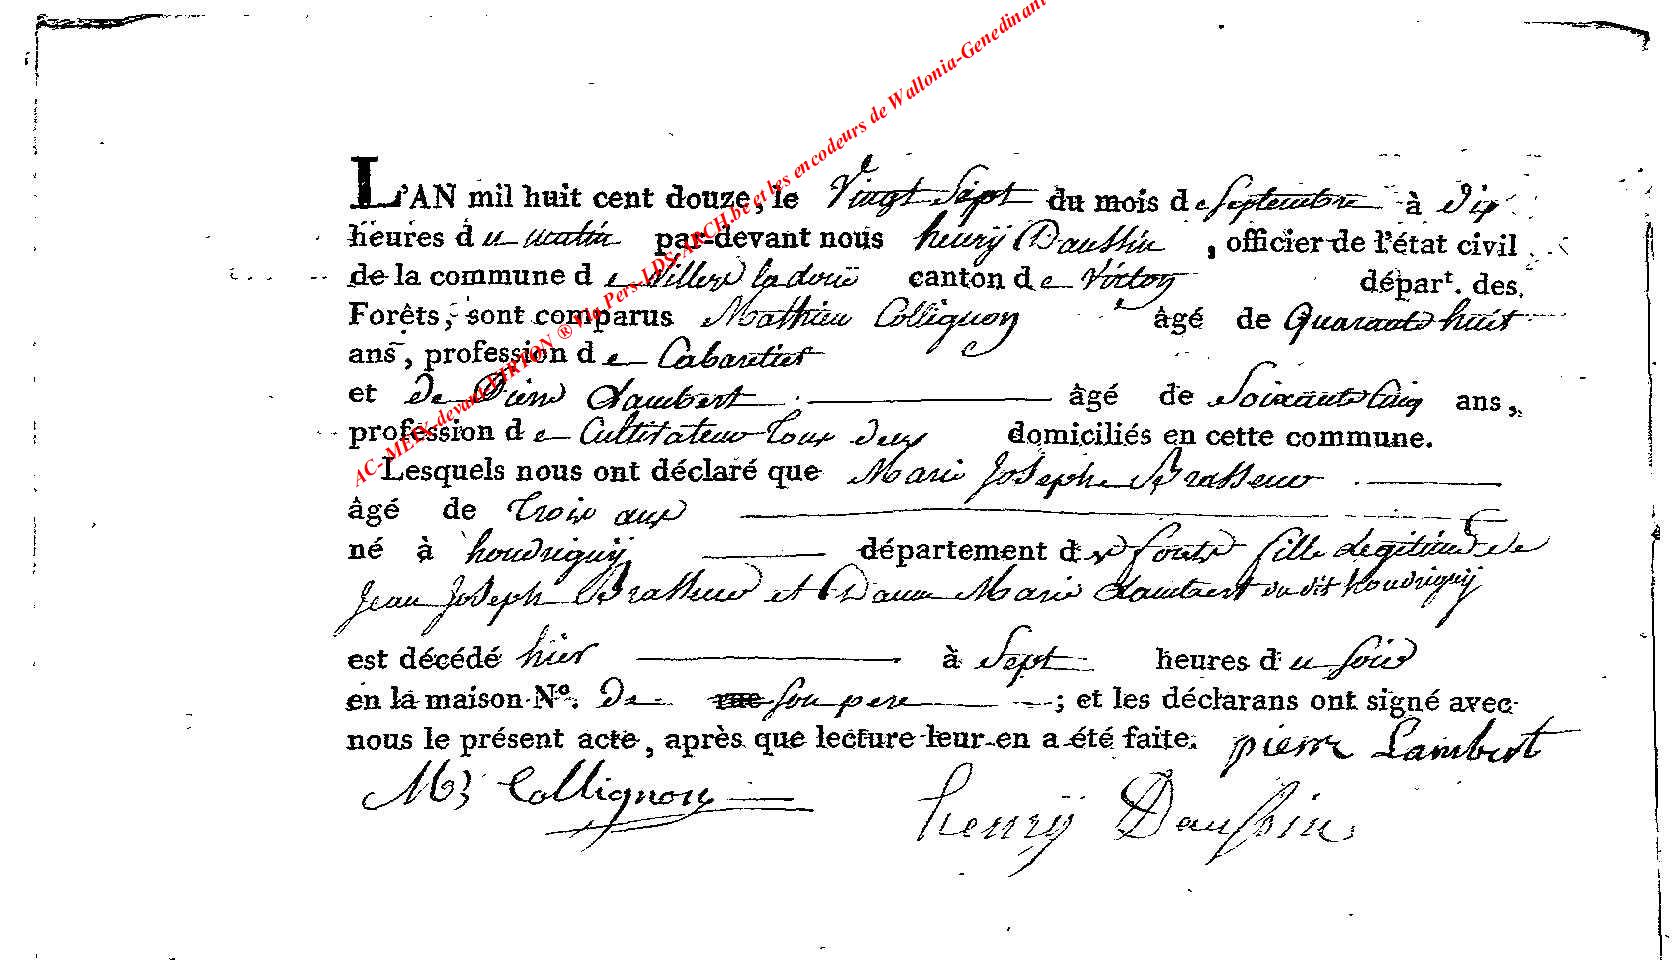 L'AN mil huit cent douze, le Vingt Sept du mois de Septembre à dix
heures du matin par-devant nous henrÿ Daussin, officier de l'état civil
de la commune de Villers la douë canton de Virton départ. des
Forêts, sont comparus Mathieu Collignon âgé de Quarante huit
ans, profession de Cabaretier
et de Pierre Lambert âgé de Soixante Cinq ans,
profession de Cultivateur Tous deux domiciliés en cette commune.
Lesquels nous ont déclaré que Marie Joseph Brasseur
âgé de Trois ans
né à houdriguÿ département de fille Legitime de
Jean Joseph Brasseur et Dame Marie Lambert du dit houdriguÿ
est décédé hier à Sept heures du soir
en la maison N°. De rue son pere ; et les déclarans ont signé avec
nous le présent acte, après que lecture leur en a été faite. pierre Lambert
M Collignon henrÿ Daussin
AC-MEIX-devant-VIRTON ® Via Pers-LDS-ARCH.be et les encodeurs de Wallonia-Genedinant